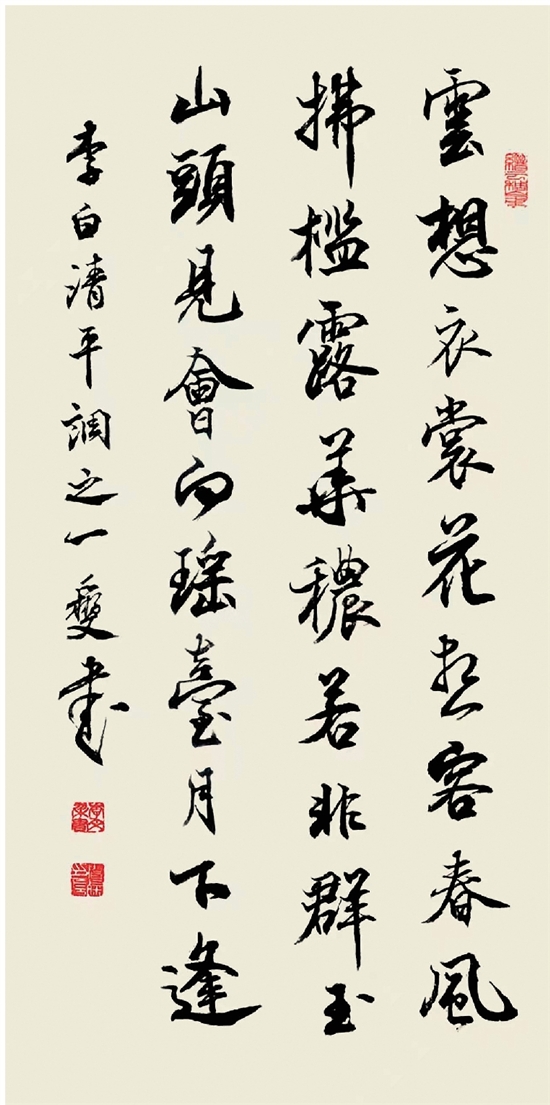 雲想衣裳花想容春風
拂檻露華穠若非群玉
山頭見會向瑤臺月下逢
李白清平調之一 書